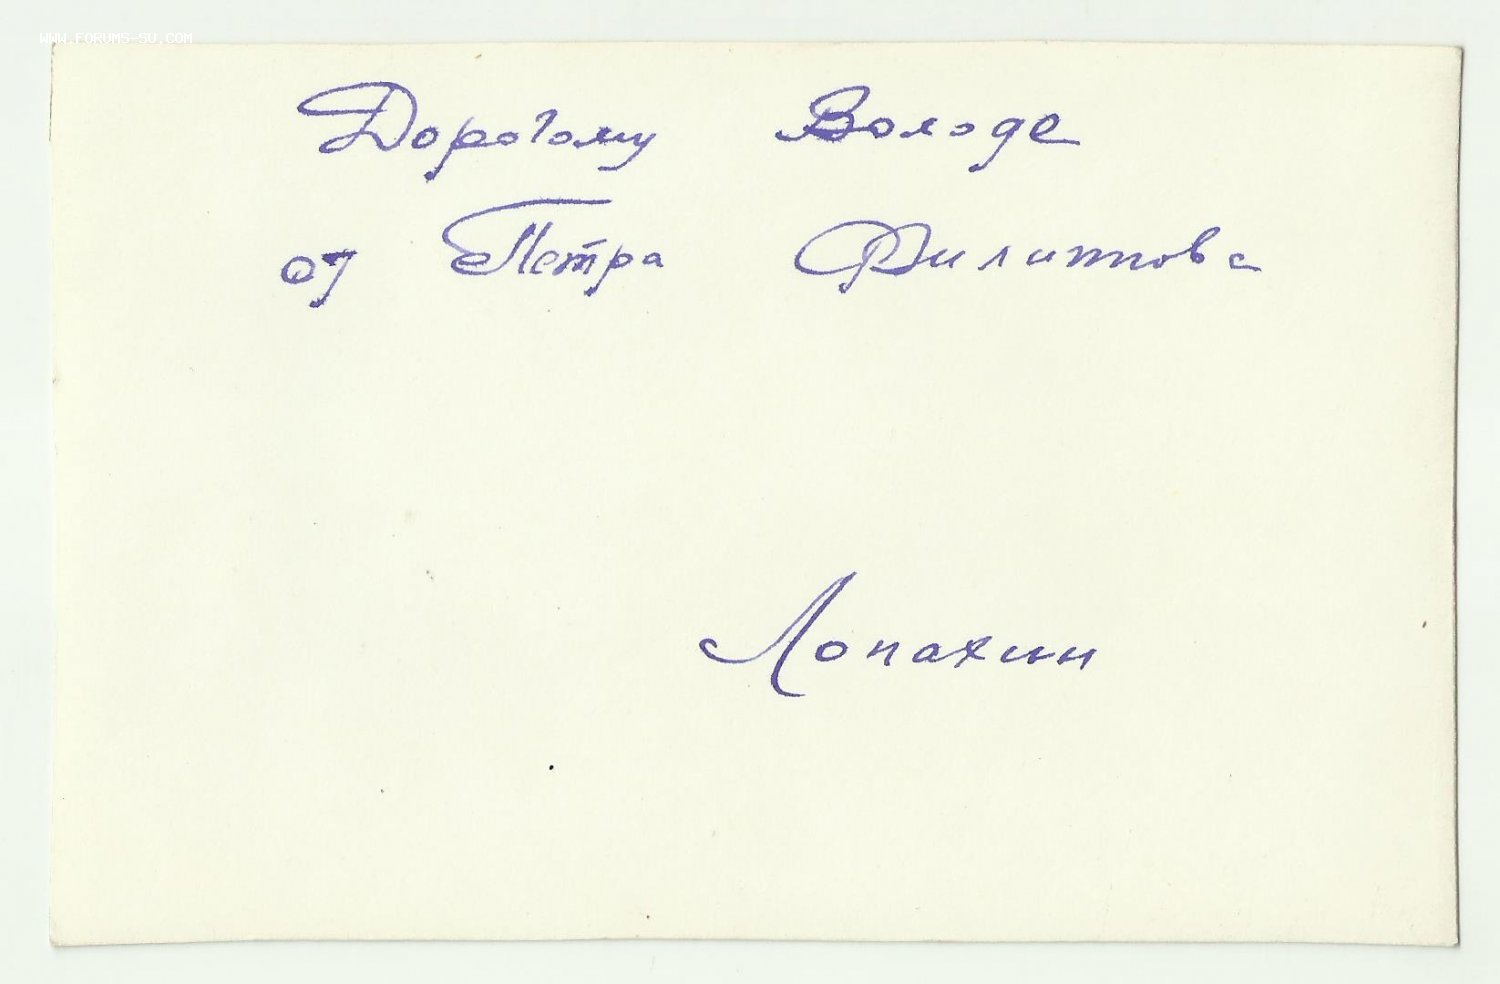 WWW.FORUMS-SU.COM
Дорогому Володе
от Петра Филиппова
Лопахин